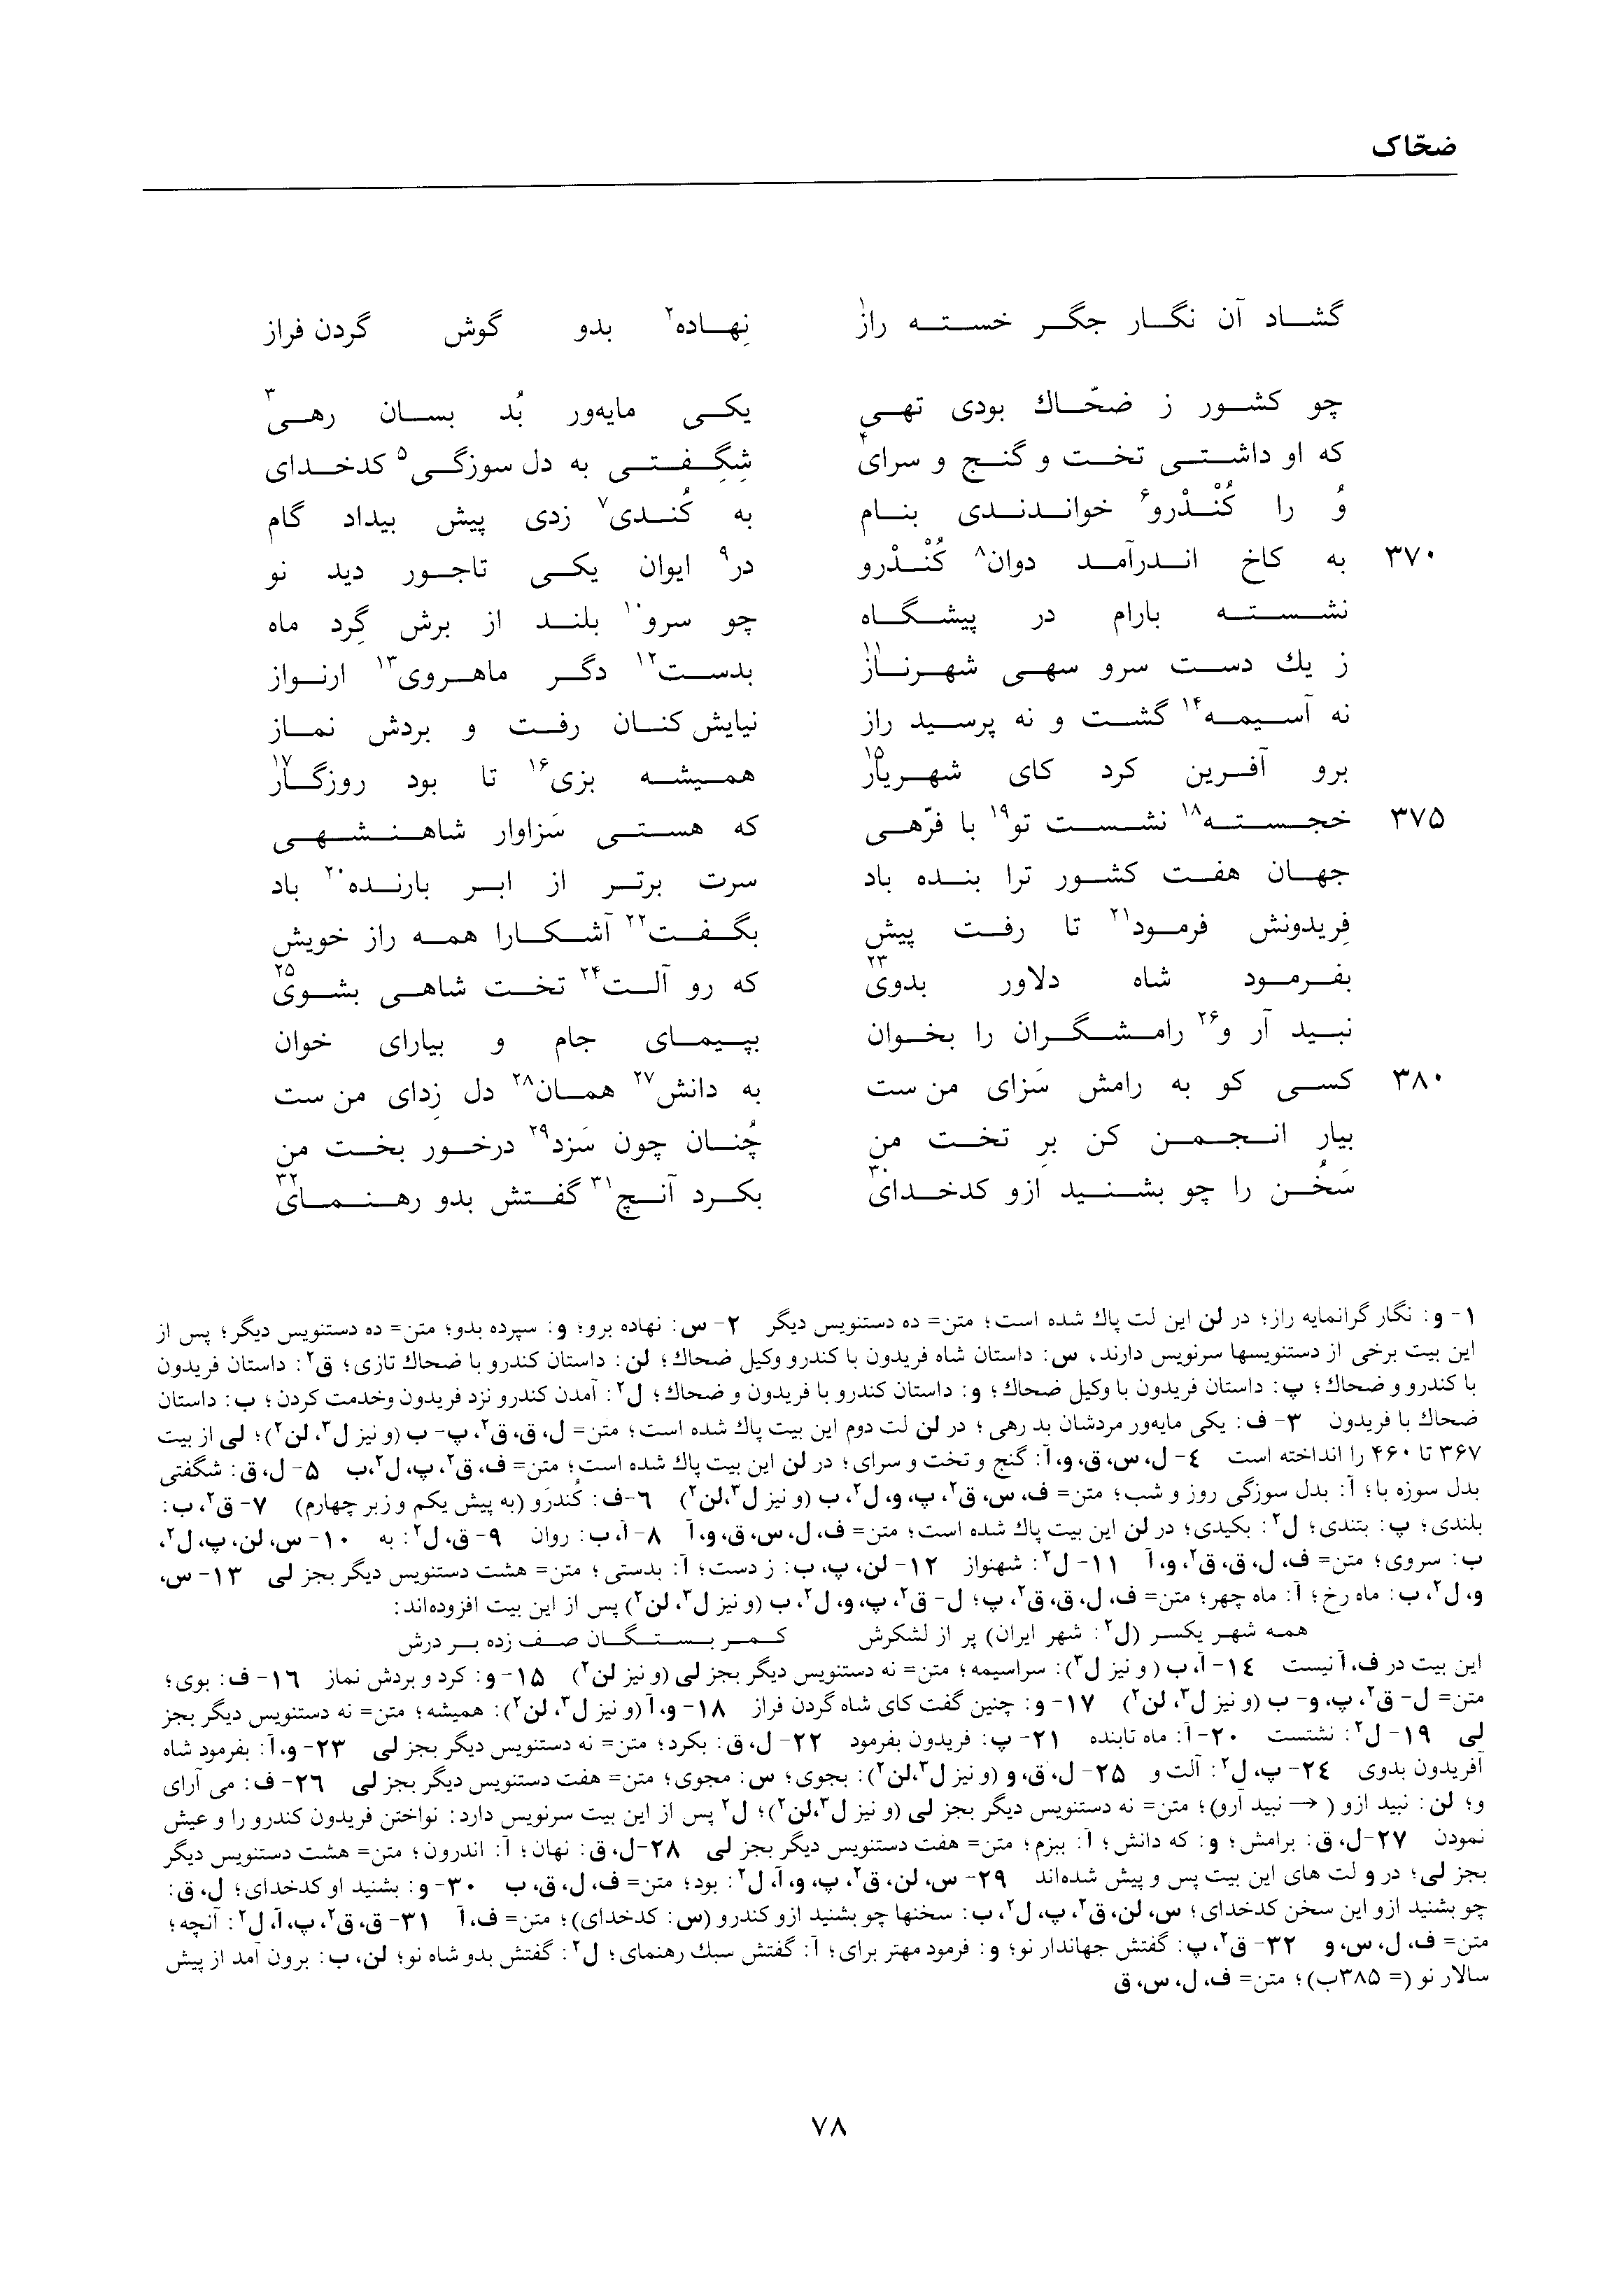 ضحّاک
گشاد آن نگار جگر خسته راز۱ نِهاده۲ بدو گوش گردن فراز
چو کشور ز ضحّاك بودی تهی یکی مایه‌ور بُد بسان رهی۳
که او داشتی تخت و گنج و سرای۴ شِگِفتی به دل سوزگی۵ کدخدای
وُ را کُنْدْرو۶ خواندندی بنام به کُندی۷ زدی پیش بیداد گام
۳۷۰ به کاخ اندرآمد دوان۸ کُنْدْرو در۹ ایوان یکی تاجور دید نو
نشسته بارام در پیشگاه چو سرو۱۰ بلند از برش گِرد ماه
ز یك دست سرو سهی شهرناز۱۱ بدست۱۲ دگر ماهروی۱۳ ارنواز
نه آسیمه۱۴ گشت و نه پرسید راز نیایش کنان رفت و بردش نماز
برو آفرین کرد کای شهریار۱۵ همیشه بزی۱۶ تا بود روزگار۱۷
۳۷۵ خجسته۱۸ نشست تو۱۹ با فرّهی که هستی سَزاوار شاهنشهی
جهان هفت کشور ترا بنده باد سرت برتر از ابر بارنده۲۰ باد
فِریدونش فرمود۲۱ تا رفت پیش بگفت۲۲ آشکارا همه راز خویش
بفرمود شاه دلاور بدوی۲۳ که رو آلت۲۴ تخت شاهی بشوی۲۵
نبید آر و۲۶ رامشگران را بخوان بپیمای جام و بیارای خوان
۳۸۰ کسی کو به رامش سَزای من ست به دانش۲۷ همان۲۸ دل زِدای من ست
بیار انجمن کن برِ تخت من چُنان چون سَزد۲۹ درخور بخت من
سَخُن را چو بشنید ازو کدخدای۳۰ بکرد آنچ۳۱ گفتش بدو رهنمای۳۲
۱- و: نگار گرانمایه راز؛ در لن این لت پاك شده است؛ متن= ده دستنویس دیگر ۲- س: نهاده برو؛ و: سپرده بدو؛ متن= ده دستنویس دیگر؛ پس از
این بیت برخی از دستنویسها سرنویس دارند، س: داستان شاه فریدون با کندرو وکیل ضحاك؛ لن: داستان کندرو با ضحاك تازی؛ ق۲: داستان فریدون
با کندرو و ضحاك؛ پ: داستان فریدون با وکیل ضحاك؛ و: داستان کندرو با فریدون و ضحاك؛ ل۲: آمدن کندرو نزد فریدون وخدمت کردن؛ ب: داستان
ضحاك با فریدون ۳- ف: یکی مایه‌ور مردشان بد رهی؛ در لن لت دوم این بیت پاك شده است؛ متن= ل، ق، ق۲، پ- ب (و نیز ل۳، لن۲)؛ لی از بیت
۳۶۷ تا ۴۶۰ را انداخته است ۴- ل، س، ق، و، آ: گنج و تخت و سرای؛ در لن این بیت پاك شده است؛ متن= ف، ق۲، پ، ل۲، ب ۵- ل، ق: شگفتی
بدل سوزه با؛ آ: بدل سوزگی روز و شب؛ متن= ف، س، ق۲، پ، و، ل۲، ب (و نیز ل۳، لن۲) ۶-ف: کُندرَو (به پیش یکم و زبر چهارم) ۷- ق۲، ب:
بلندی؛ پ: بتندی؛ ل۲: بکیدی؛ در لن این بیت پاك شده است؛ متن= ف، ل، س، ق، و، آ ۸- آ، ب: روان ۹- ق، ل۲: به ۱۰- س، لن، پ، ل۲،
ب: سروی؛ متن= ف، ل، ق، ق۲، و، آ ۱۱- ل۲: شهنواز ۱۲- لن، پ، ب: ز دست؛ آ: بدستی؛ متن= هشت دستنویس دیگر بجز لی ۱۳- س،
و، ل۲، ب: ماه رخ؛ آ: ماه چهر؛ متن= ف، ل، ق، ق۲، پ؛ ل- ق۲، پ، و، ل۲، ب (و نیز ل۳، لن۲) پس از این بیت افزوده‌اند:
همه شهر یکسر (ل۲: شهر ایران) پر از لشکرش کمر بستگان صف زده بر درش
این بیت در ف، آ نیست ۱۴- آ، ب (و نیز ل۳): سراسیمه؛ متن= نه دستنویس دیگر بجز لی (و نیز لن۲) ۱۵- و: کرد و بردش نماز ۱۶- ف: بوی؛
متن= ل- ق۲، پ، و- ب (و نیز ل۳، لن۲) ۱۷- و: چنین گفت کای شاه گردن فراز ۱۸- و، آ (و نیز ل۳، لن۲): همیشه؛ متن= نه دستنویس دیگر بجز
لی ۱۹- ل۲: نشتست ۲۰- آ: ماه تابنده ۲۱- پ: فریدون بفرمود ۲۲- ل، ق: بکرد؛ متن= نه دستنویس دیگر بجز لی ۲۳- و، آ: بفرمود شاه
آفریدون بدوی ۲۴- پ، ل۲: آلت و ۲۵- ل، ق، و (و نیز ل۳، لن۲): بجوی؛ س: مجوی؛ متن= هفت دستنویس دیگر بجز لی ۲۶- ف: می آرای
و؛ لن: نبید ازو (← نبید آرو)؛ متن= نه دستنویس دیگر بجز لی (و نیز ل۳، لن۲)؛ ل۲ پس از این بیت سرنویس دارد: نواختن فریدون کندرو را و عیش
نمودن ۲۷-ل، ق: برامش؛ و: که دانش؛ آ: ببزم؛ متن= هفت دستنویس دیگر بجز لی ۲۸-ل، ق: نهان؛ آ: اندرون؛ متن= هشت دستنویس دیگر
بجز لی؛ در و لت های این بیت پس و پیش شده‌اند ۲۹- س، لن، ق۲، پ، و، آ، ل۲: بود؛ متن= ف، ل، ق، ب ۳۰- و: بشنید او کدخدای؛ ل، ق:
چو بشنید ازو این سخن کدخدای؛ س، لن، ق۲، پ، ل۲، ب: سخنها چو بشنید ازو کندرو (س: کدخدای)؛ متن= ف، آ ۳۱- ق، ق۲، پ، آ، ل۲: آنچه؛
متن= ف، ل، س، و ۳۲- ق۲، پ: گفتش جهاندار نو؛ و: فرمود مهتر برای؛ آ: گفتش سبك رهنمای؛ ل۲: گفتش بدو شاه نو؛ لن، ب: برون آمد از پیش
سالار نو (= ۳۸۵ب)؛ متن= ف، ل، س، ق
۷۸